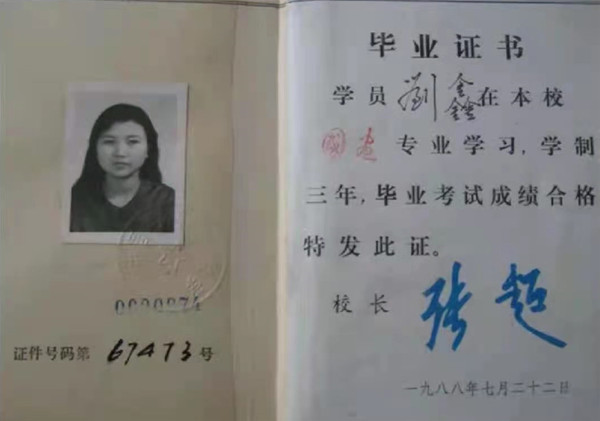 证件号码第 67473 号
毕业证书
学员劉鑫在本校
國畫专业学习，学制
三年，毕业考试成绩合格
特发此证。
校长 张超
一九八八年七月二十二日